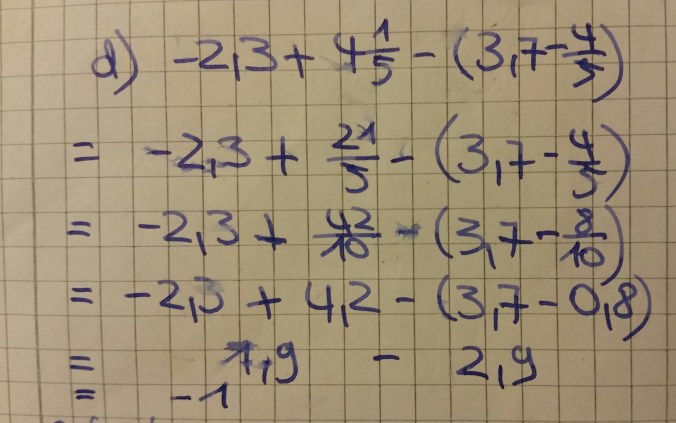 d) -2,3 + 4 1/5 - (3,7 - 4/5)
= -2,3 + 21/5 - (3,7 - 4/5)
= -2,3 + 42/10 - (3,7 - 8/10)
= -2,3 + 4,2 - (3,7 - 0,8)
= 1,9 - 2,9
= -1